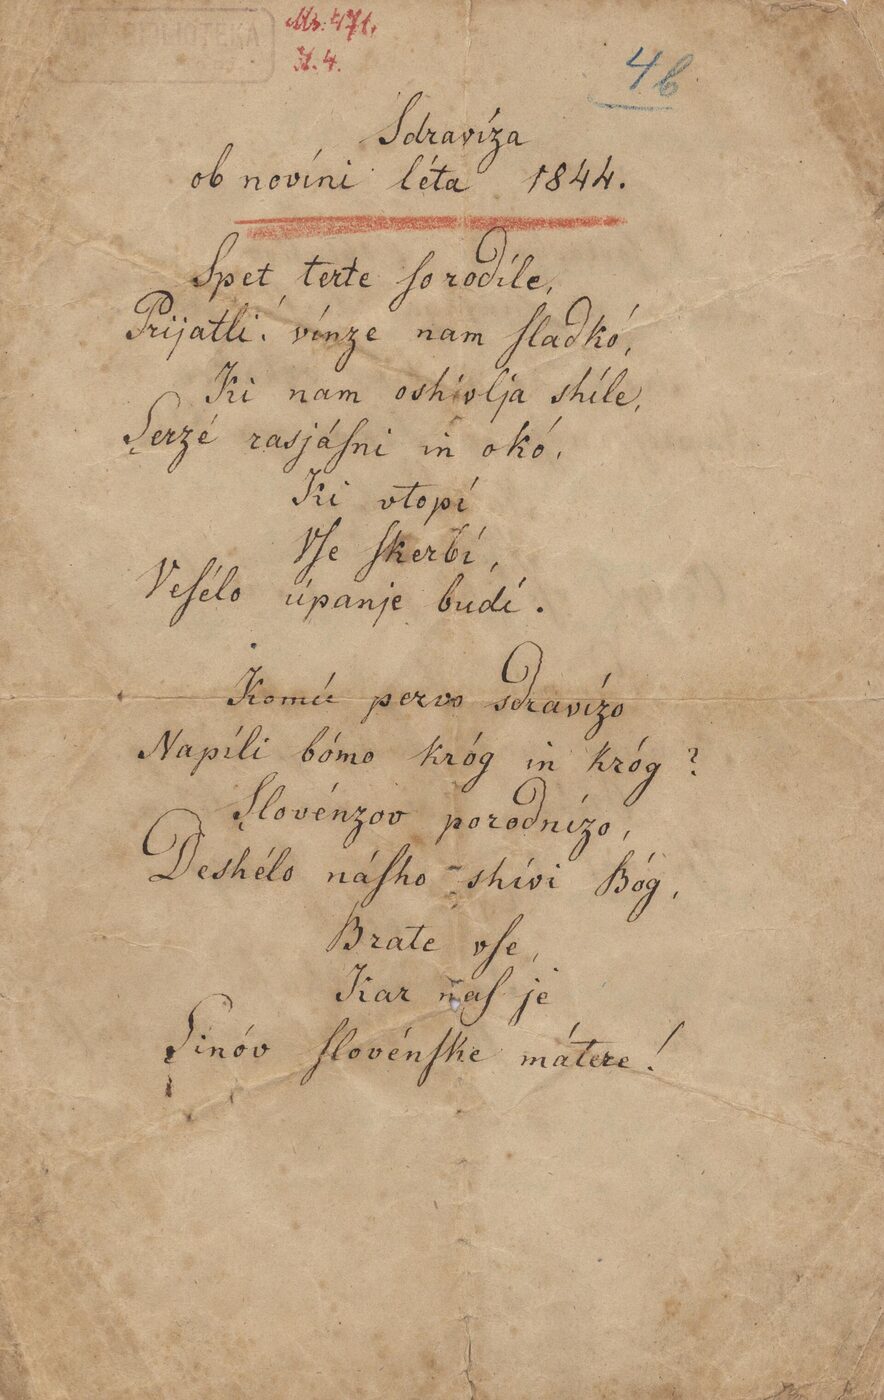 Ms. 471,
N. 4.
4b
Sdravíza
ob novíni léta 1844.
Spet terte ſo rodíle,
Prijatli! vínze nam ſladkó,
Ki nam oshívlja shíle,
Şerzé rasjáſni in okó,
Ki vtopí
Vſe ſkerbí,
Veſélo úpanje budí.
Komú pervo sdravízo
Napíli bómo króg in króg?
Şlovénzov porodnízo,
Deshélo náſho shívi Bóg,
Brate vſe,
Kar naſ je
Şinóv ſlovénſke mátere!